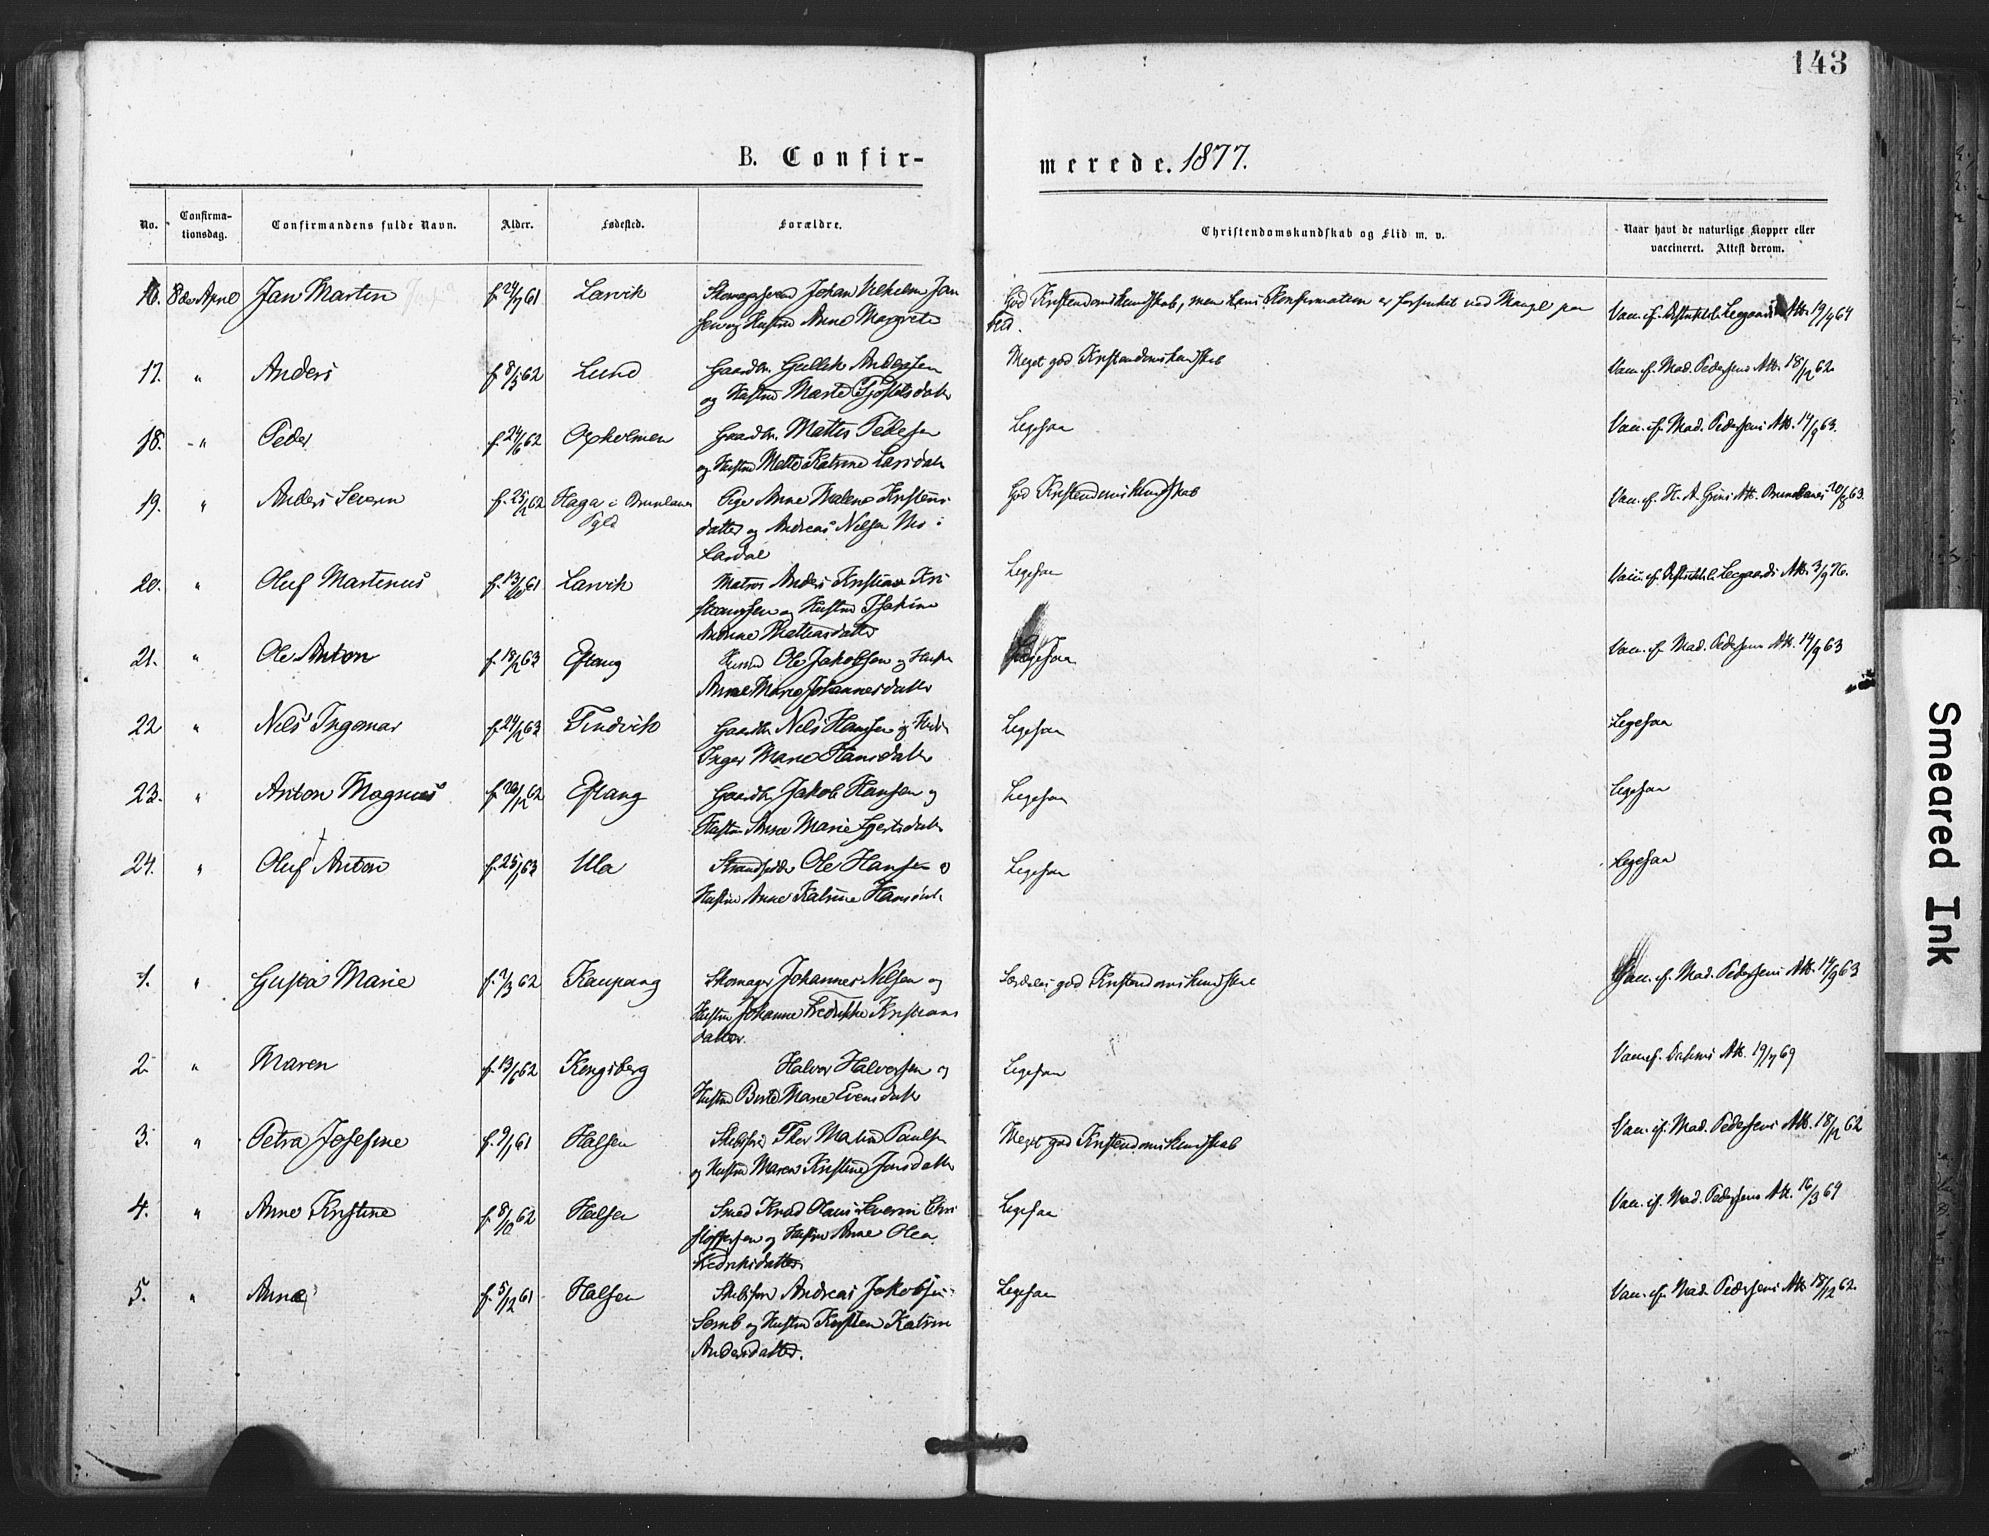 143
B. Confir-
merede. 1877.
No.
Confirma-
tionsdag.
Confirmandens fulde Navn.
Alder.
Fødested.
Forældre.
Christendomskundskab og Flid m. v.
Naar havt de naturlige Kopper eller
vaccineret. Attest derom.
16. 8de April Jan Martin f. 24/7 61 Larvik Johan Vilhelm Jan
sen og Hustru Anne Margrete
God Kristendomskundskab, men hans Konfirmation er forsinket ved Mangel paa
Flid.
Vac. ef. Legaards Att. 19/7 64
17. " Anders f. 8/5 62 Lund Gaardbr. Gullik Anderssen
og Hustru Marte
Meget god Kristendomskundskab
Vac. ef. Mad. Pedersens Att. 18/12 62
18. " Peder f. 24/6 62 Oxholmen Gaardbr. Mattis Pedersen
og Hustru Mette Katrine Larsdatter
Ligesaa
Vac. ef. Mad. Pedersens Att. 14/9 63.
19. " Anders Severin f. 25/12 62 Haga i Brunlanes
Pgld
Pige Anne Malene Kristens
datter og Andreas Nilsen Mo i
Lardal
God Kristendomskundskab
Vac. ef. H. A. Att. Brunlanes 20/8 63.
20. " Oluf Martinus f. 13/10 61 Larvik Matros Anders Kristian Kri
stiansen og Hustru
Andrine Mathiasdatter
Ligesaa
Vac. ef. Legaards Att. 3/9 76.
21. " Ole Anton f. 18/2 63 Eftang Ole Jakobsen og Hustru
Anne Marie Johannesdatter
Ligesaa
Vac. ef. Mad. Pedersens Att. 14/9 63
22 " Nils Ingemar f. 24/2 63 Tindvik Gaardbr Nils Hansen og Hustru
Inger Marie Hansdatter
Ligesaa
Ligesaa
23. " Anton Magnus f. 26/12 62 Eftang Gaardbr Jakob Hansen og
Hustru Anne Marie
Ligesaa
Ligesaa
24. " Oluf Anton f. 25/1 63 Ula Strandsidder Ole Hansen og
Hustru Anne Katrine
Ligesaa
Ligesaa
1. " Gusta Marie f. 7/3 62 Kaupang Skomager Johannes Nilsen og
Hustru Johanne Fredrikke Kristians
datter.
Særdeles god Kristendomskundskab
Vac. ef. Mad. Pedersens Att. 14/9 63
2 " Maren f. 13/6 62 Kongsberg Halvor Halvorsen og
Hustru Berte Marie Evensdatter
Ligesaa
Vac. ef. Att. 19/7 69
3. " Petra Josefine f. 9/1 61 Halsen Thor Paulsen
og Hustru Maren Kristine Jonsdatter
Meget god Kristendomskundskab
Vac. ef. Mad. Pedersens Att. 18/12 62
4. " Anne Kristine f. 8/10 62 Halsen Smed Knud Hans Severin Chri
stoffersen og Hustru Anne Olea
Fredriksdatter
Ligesaa
Vac. ef. Mad. Pedersens Att. 16/3 64
5. " Anne f. 5/12 61 Halsen Andreas Jakobsen
Semb og Hustru Kirsten Katrine
Andersdatter.
Ligesaa
Vac. ef. Mad. Pedersens Att. 18/12 62.
Smeared Ink